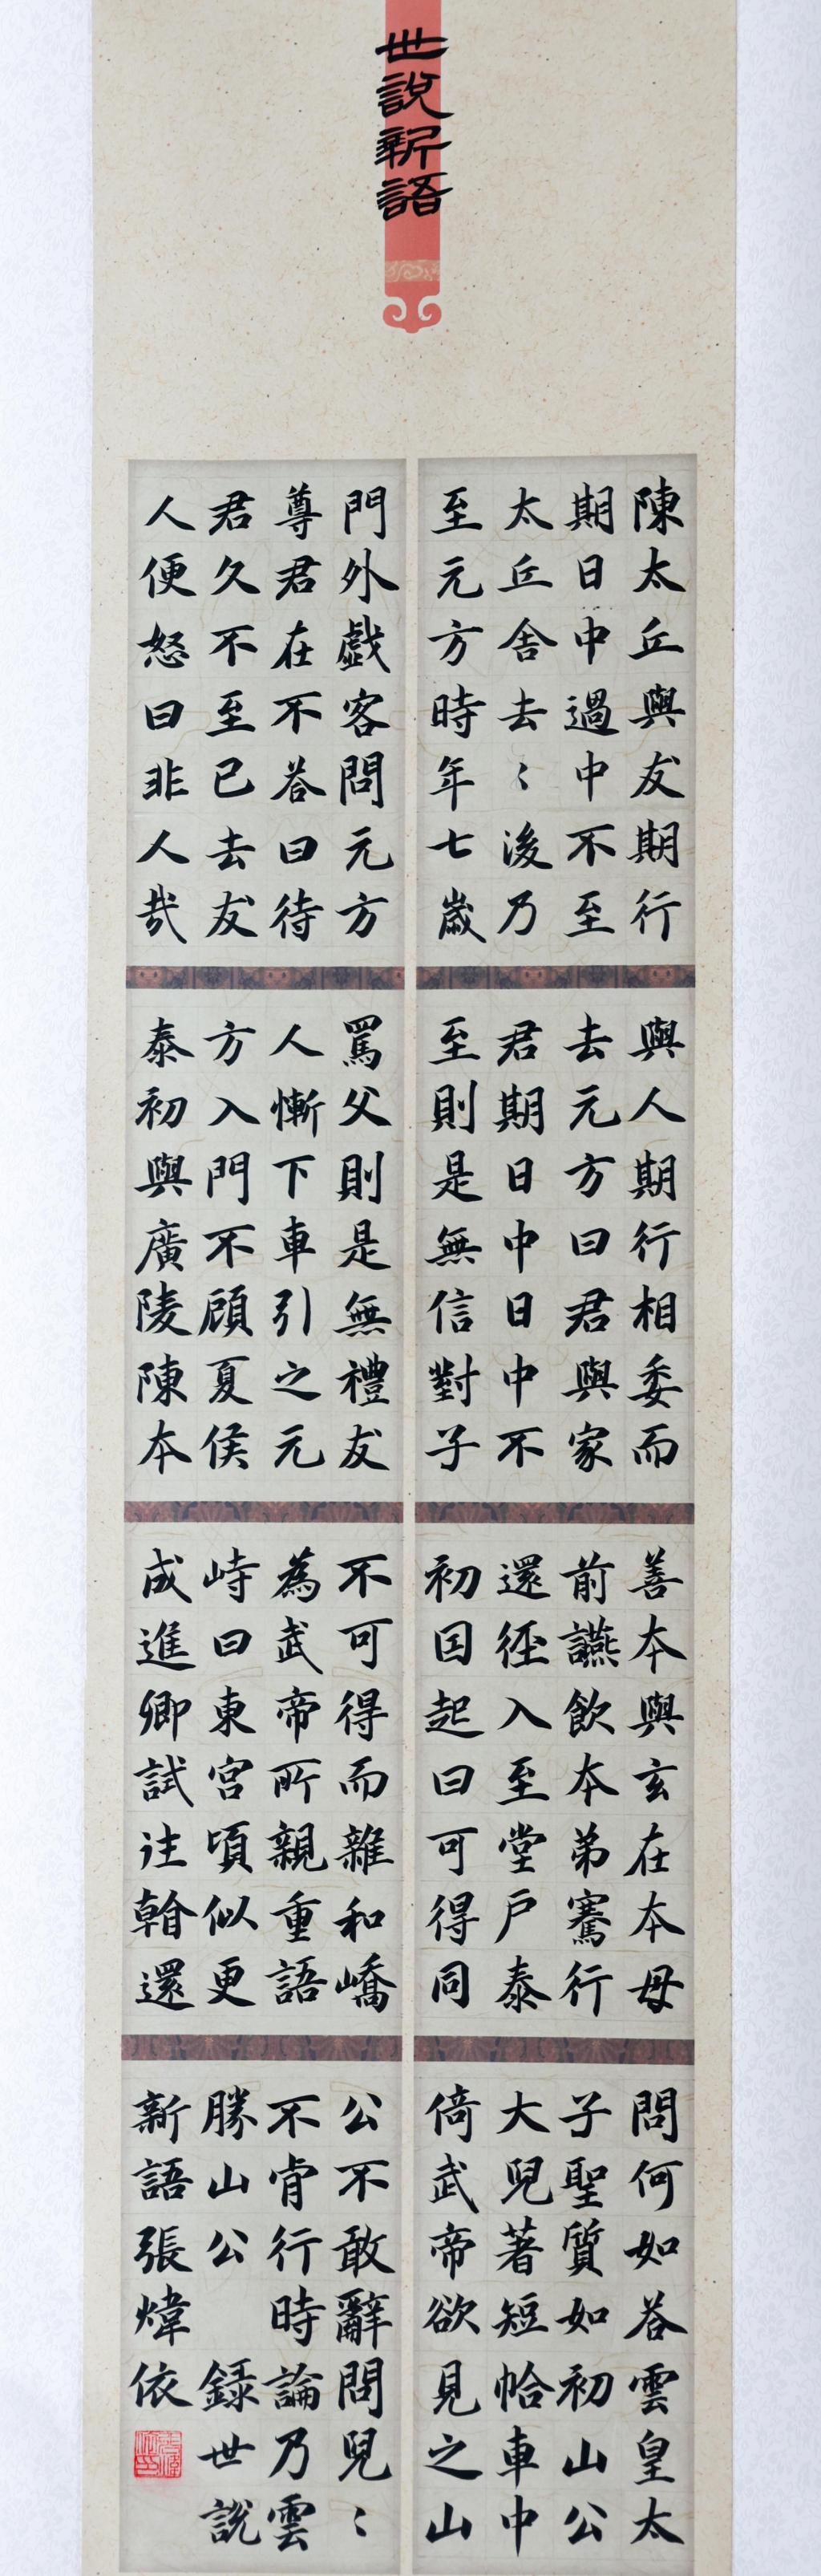 世說新語
陳太丘與友期行
期日中過中不至
太丘舍去〻後乃
至元方時年七歲
門外戲客問元方
尊君在不荅曰待
君久不至已去友
人便怒曰非人哉
與人期行相委而
去元方曰君與家
君期日中日中不
至則是無信對子
罵父則是無禮友
人慚下車引之元
方入門不顧夏侯
泰初與廣陵陳本
善本與玄在本母
前讌飲本弟騫行
還徑入至堂戶泰
初因起曰可得同
不可得而雜和嶠
為武帝所親重語
峙曰東宮頃似更
成進卿試往看還
問何如荅雲皇太
子聖質如初山公
大兒著短帢車中
倚武帝欲見之山
公不敢辭問兒〻
不肯行時論乃雲
勝山公 錄世說
新語張煒依